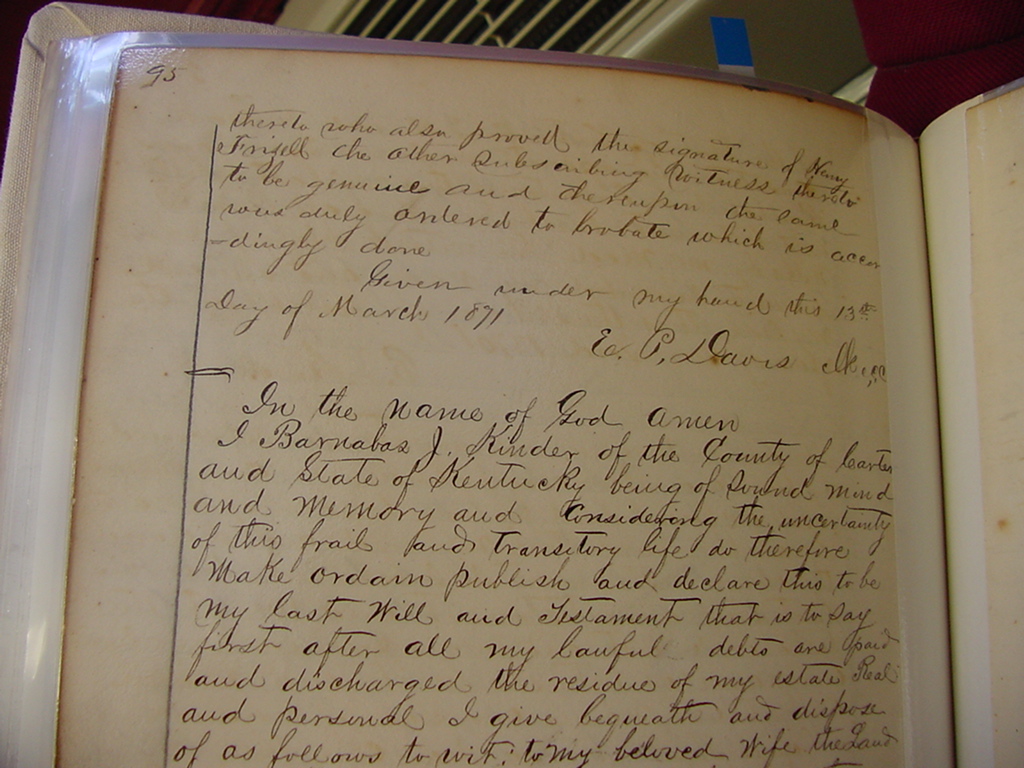 95
thereto who also proved the signature of Henry
Tinsell the other subscribing Witness thereto
to be genuine and thereupon the same
was duly ordered to probate which is accor
-dingly done
Given under my hand this 13th
day of March 1871
Ed. P. Davis Clk
In the name of God amen
I Barnabas J. Kinder of the County of Carter
and State of Kentucky being of sound mind
and Memory and Considering the uncertainty
of this frail and transitory life do therefore
Make ordain publish and declare this to be
My last Will and Testament that is to say
first after all my lawful debts are paid
and discharged the residue of my estate Real
and personal I give bequeath and dispose
of as follows to wit, to my beloved Wife